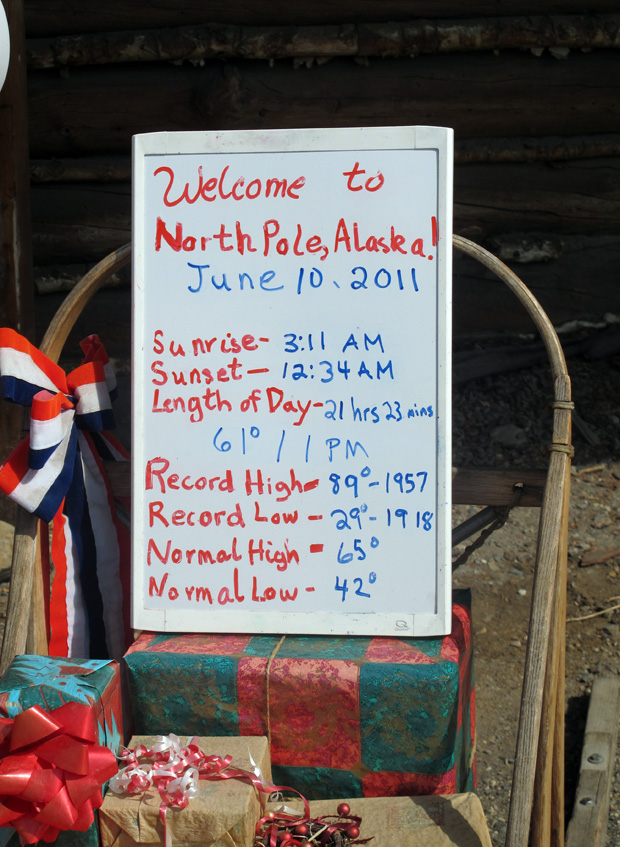 Welcome to
North Pole, Alaska!
June 10, 2011
Sunrise- 3:11 AM
Sunset- 12:34 AM
Length of Day- 21 hrs 23 mins
61° / 1 PM
Record High- 89° - 1957
Record Low - 29° - 1918
Normal High - 65°
Normal Low - 42°